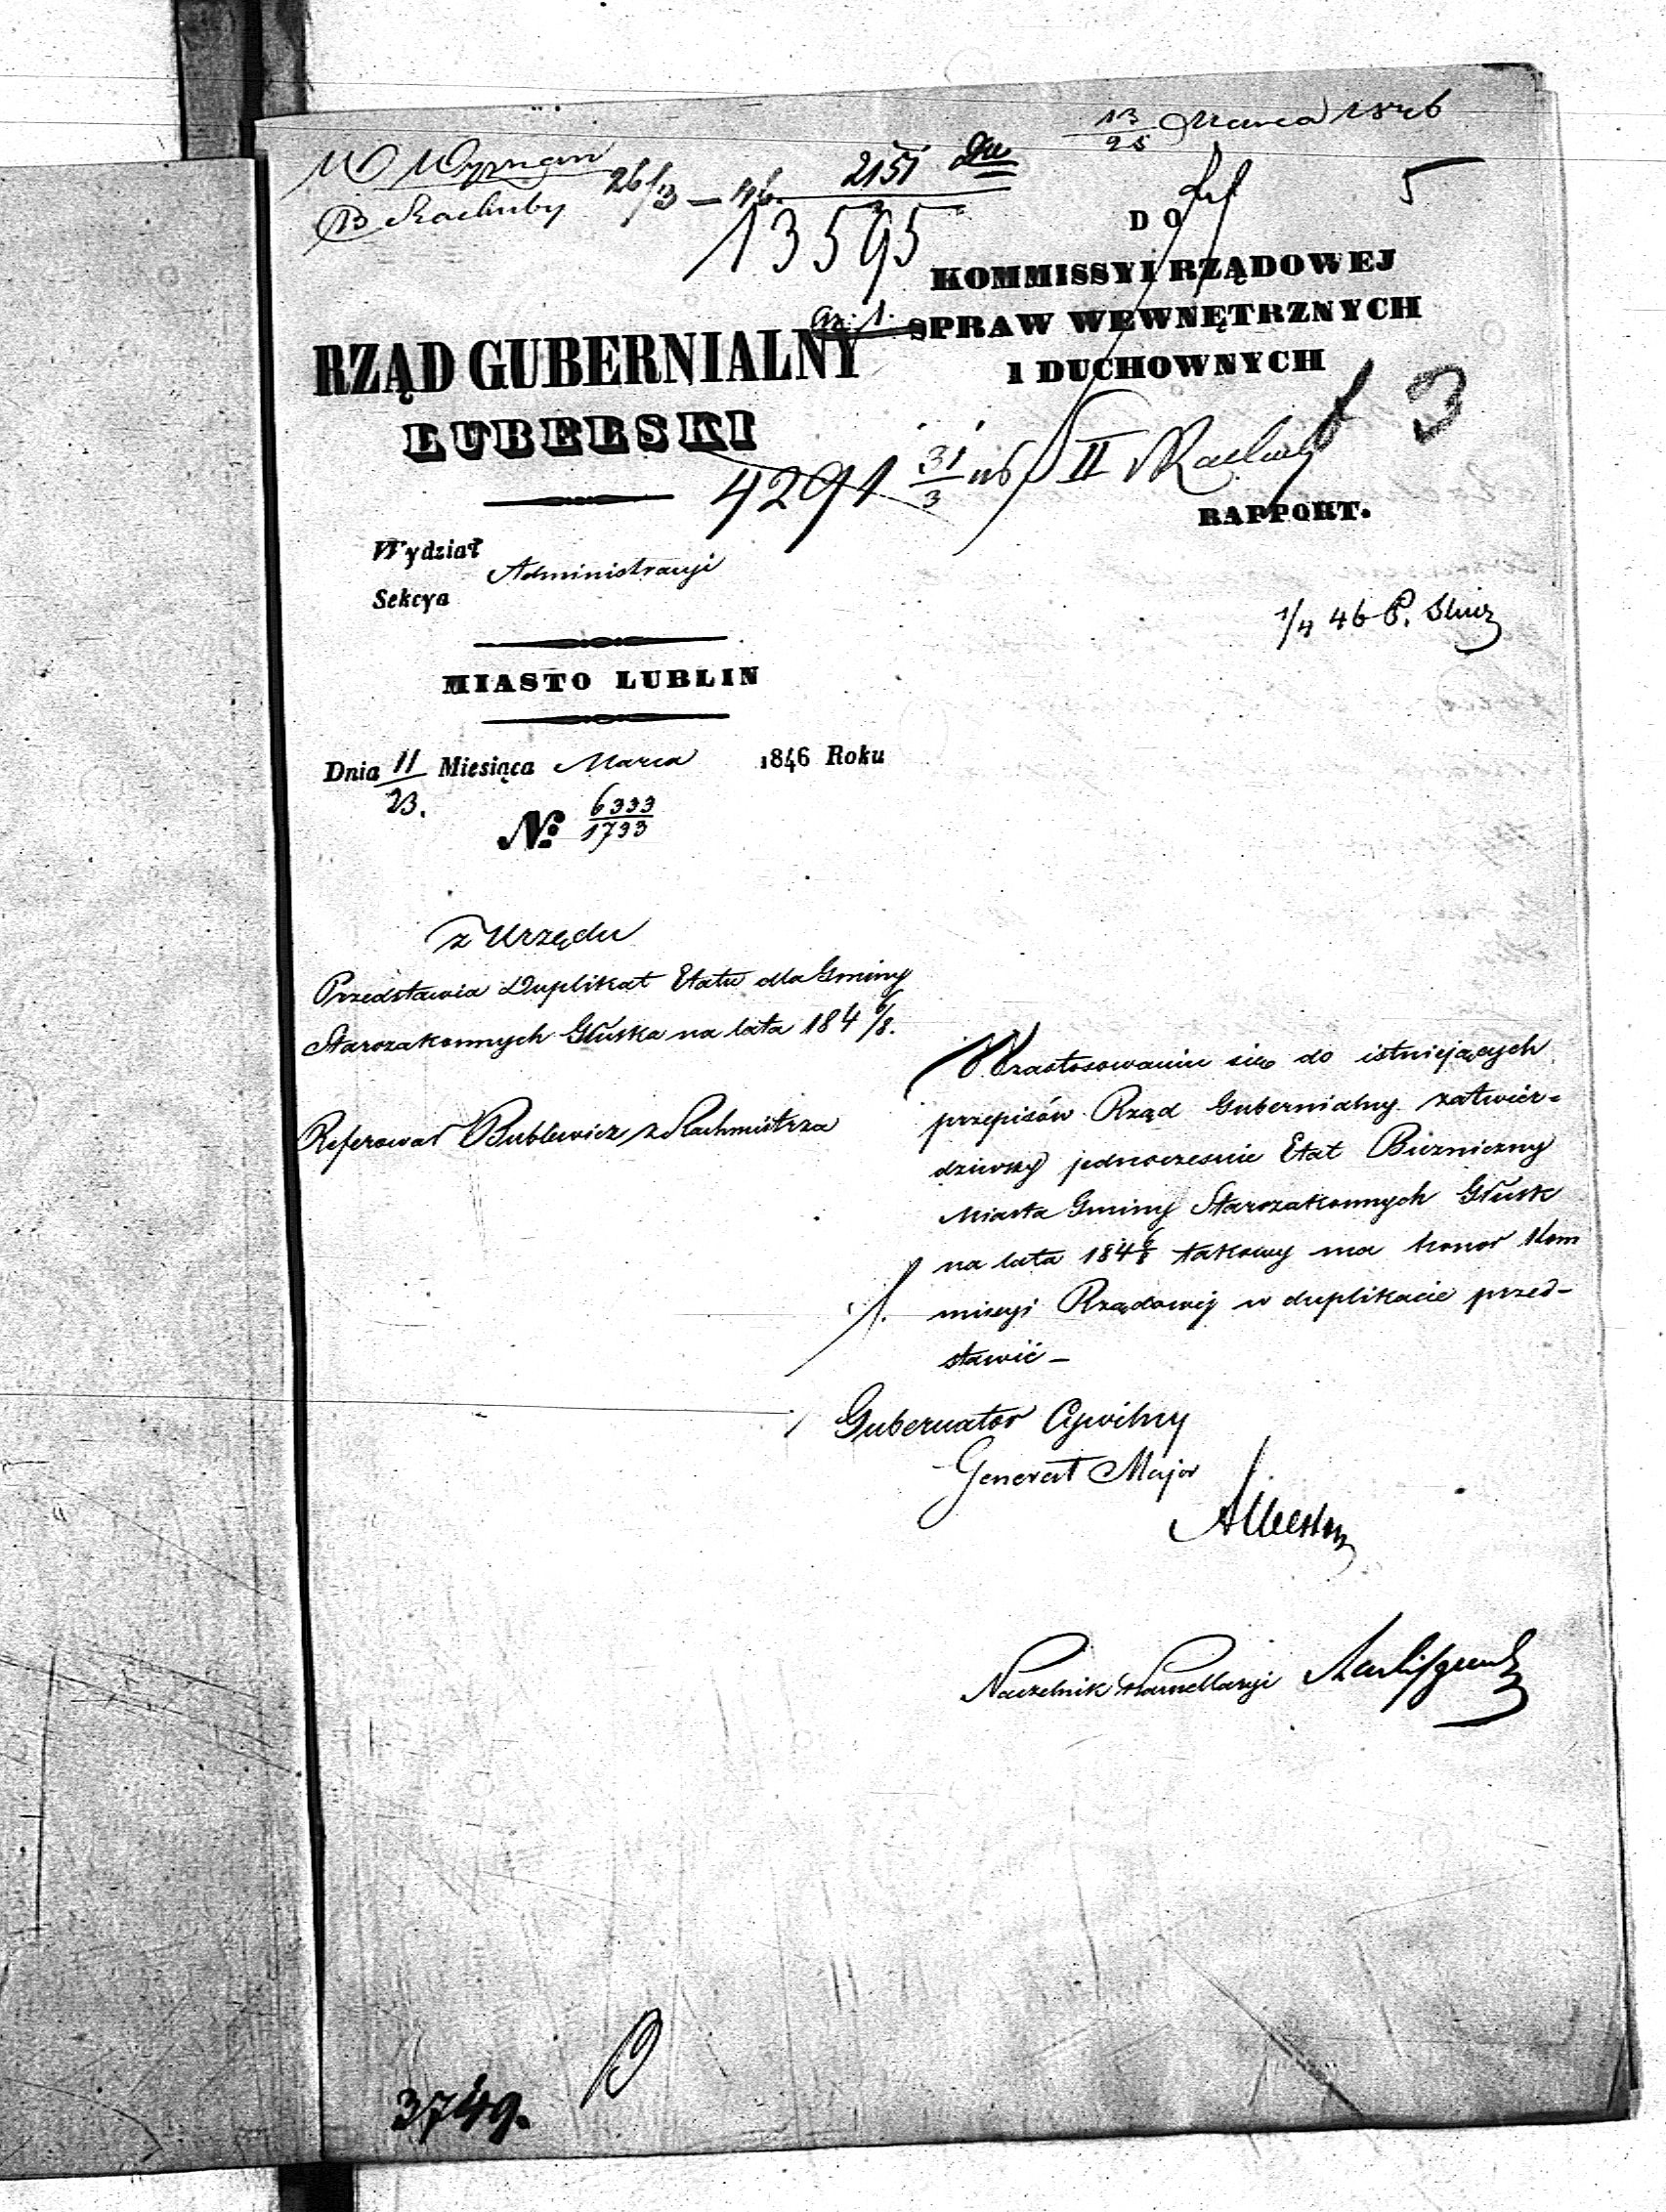 13/25 Marca 1846
W Wyznań
B Rachuby 26/3 – 46.
2151
13595
5
DO
KOMMISSYI RZĄDOWEJ
SPRAW WEWNĘTRZNYCH
I DUCHOWNYCH
RZĄD GUBERNIALNY
LUBELSKI
3
4291 31/3 II
RAPPORT.
Wydział
Administracyi
Sekcya
1/4 46 P.
MIASTO LUBLIN
Dnia 11/23. Miesiąca Marca 1846 Roku
No: 6333/1733
z Urzędu
Przedstawia Duplikat Etatu dla Gminy
Starozakonnych Głuska na lata 184 6/8.
Referował Bublewicz z Rachmistrza
W zastosowaniu się do istniejących
przepisów Rząd Gubernialny zatwier-
dziwszy jednocześnie Etat Bużniczny
Miasta Gminy Starozakonnych Głusk
na lata 184 6/8 takowy ma honor Kom
missyi Rządowéj w duplikacie przed-
stawić –
Gubernator Cywilny
Generał Major
Naczelnik Kancellaryi
3749.